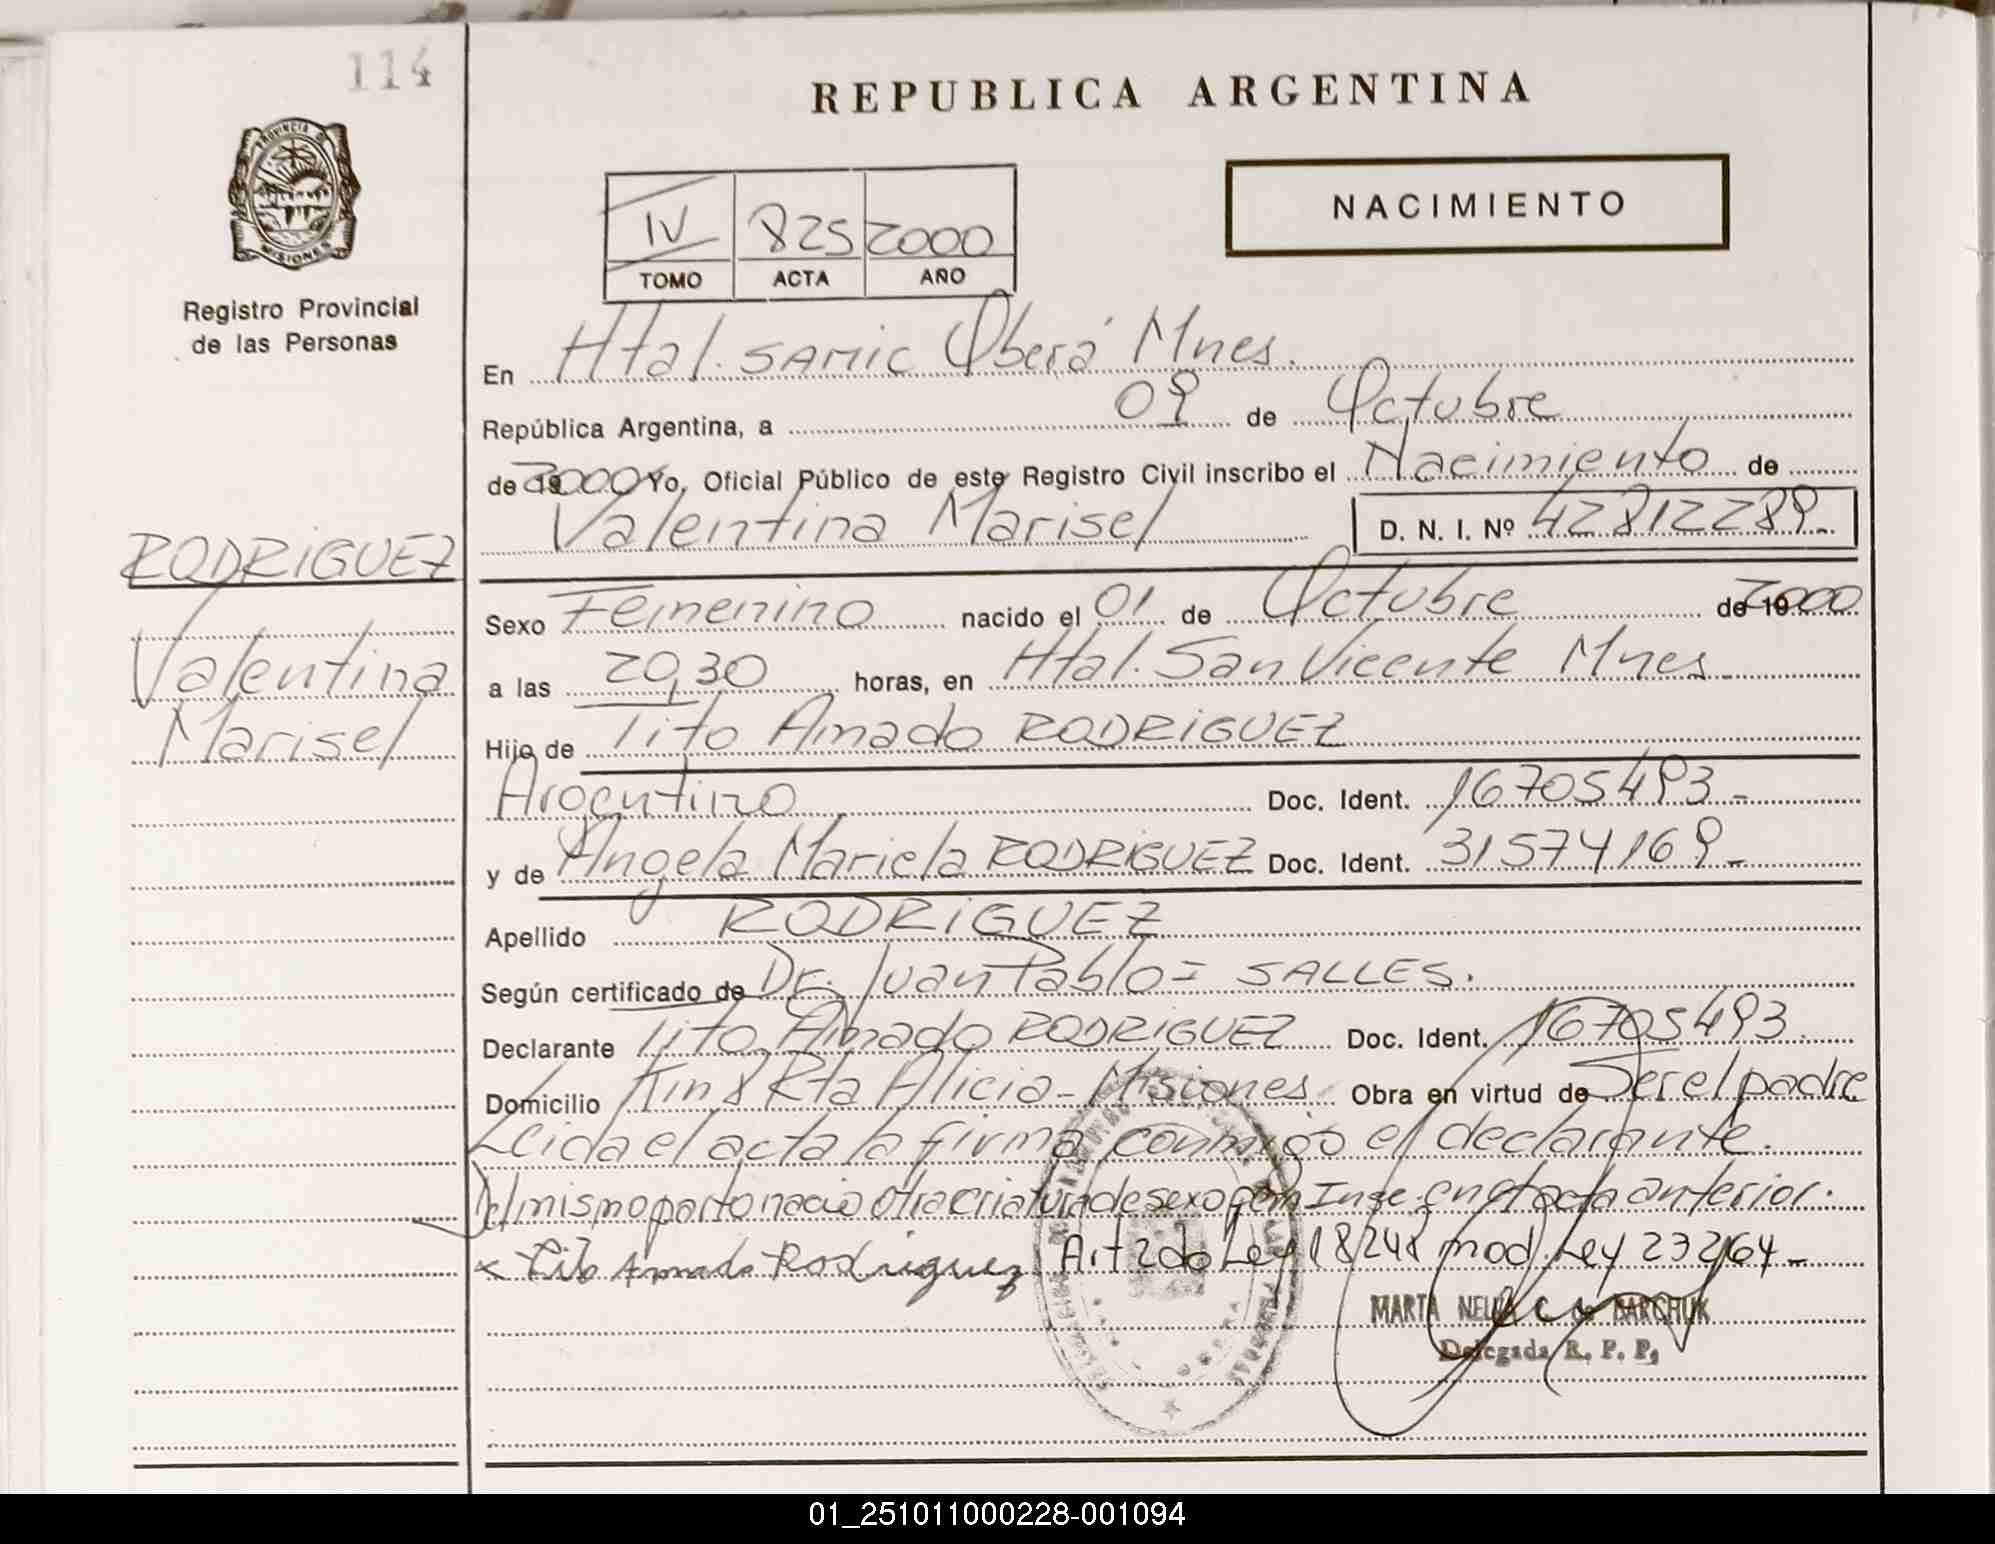 114
REPUBLICA ARGENTINA
PROVINCIA DE
MISIONES
Registro Provincial
de las Personas
NACIMIENTO
IV 825 2000
TOMO ACTA AÑO
En Htal. SAMIC Oberá Mnes.
República Argentina, a 09 de Octubre
de 2000 Yo, Oficial Público de este Registro Civil inscribo el Nacimiento de
Valentina Marisel D. N. I. Nº 42812289.-
RODRIGUEZ
Valentina
Marisel
Sexo Femenino nacido el 01 de Octubre de 2000
a las 20,30 horas, en Htal. San Vicente Mnes.
Hijo de Tito Amado RODRIGUEZ
Argentino Doc. Ident. 16705493-
y de Angela Mariela RODRIGUEZ Doc. Ident. 31574169.-
Apellido RODRIGUEZ
Según certificado de Dr. Juan Pablo = SALLES.
Declarante Tito Amado RODRIGUEZ Doc. Ident. 16705493.
Domicilio Km 8 Rta Alicia - Misiones Obra en virtud de Ser el padre
Leida el acta la firma conmigo el declarante.
Del mismo parto nació otra criatura de sexo fem Insc. en el acta anterior.
x Tito Amado Rodriguez Art 2do Ley 18248 mod. Ley 23264-
MARTA NELIDA C. de BARCHUK
Delegada R. P. P.
01_251011000228-001094